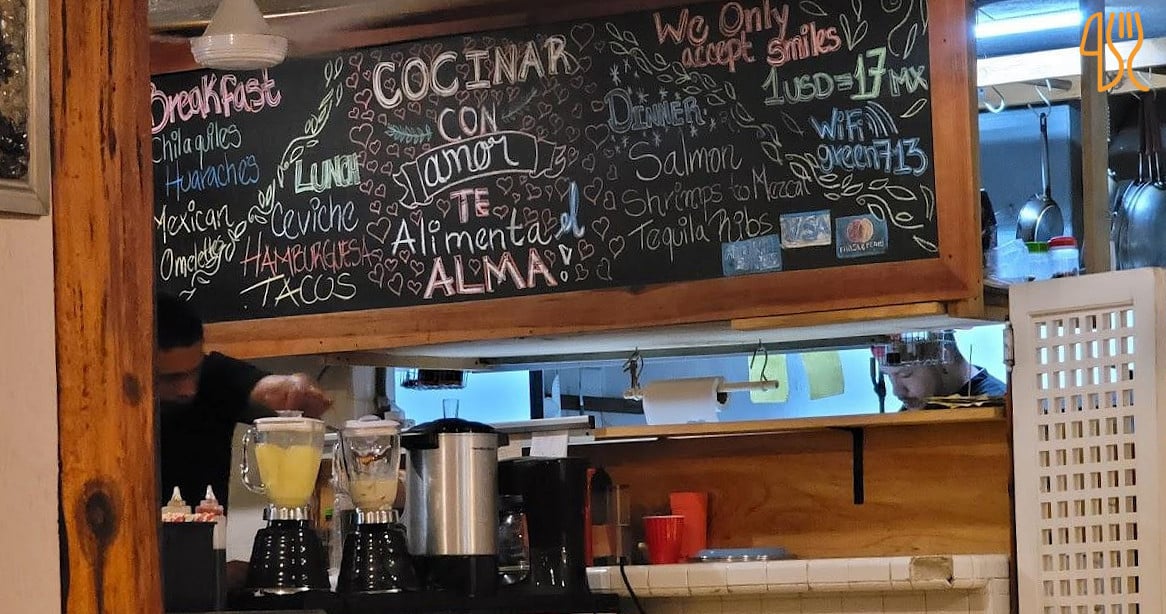 Breakfast
Chilaquiles
Huaraches
Mexican
Omelettes
LUNCH
Ceviche
HAMBURGUESA
TACOS
COCINAR
CON
amor
TE
Alimenta el
ALMA!
DINNER
Salmon
Shrimps to Mezcal
Tequila Ribs
We Only
accept smiles
1USD=17 MX
wifi
green713
VISA
mastercard